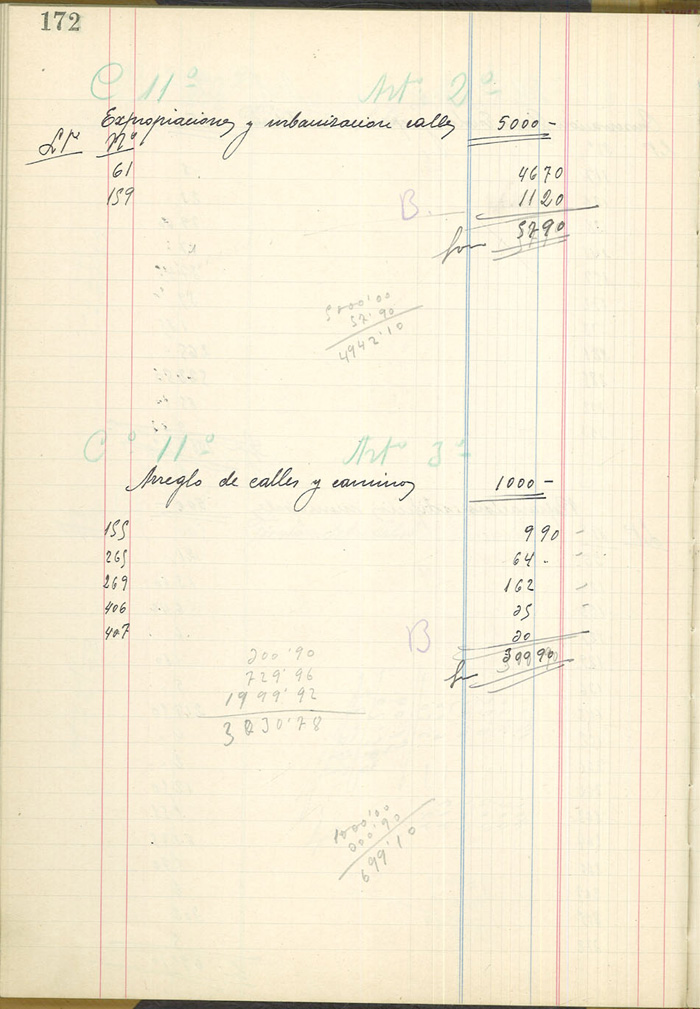 172
C 11º Artº 2º
Expropiaciones y urbanizacion calles 5000 -
Nº
61 46 70
159 11 20
B.
57 90
5000'00
57'90
4942'10
Cº 11º Artº 3º
Arreglo de calles y caminos 1000 -
155 9 90
265 64 -
269 162
406 25
407 20
B
200'90
729'96
1999'92
1000'00
699'10